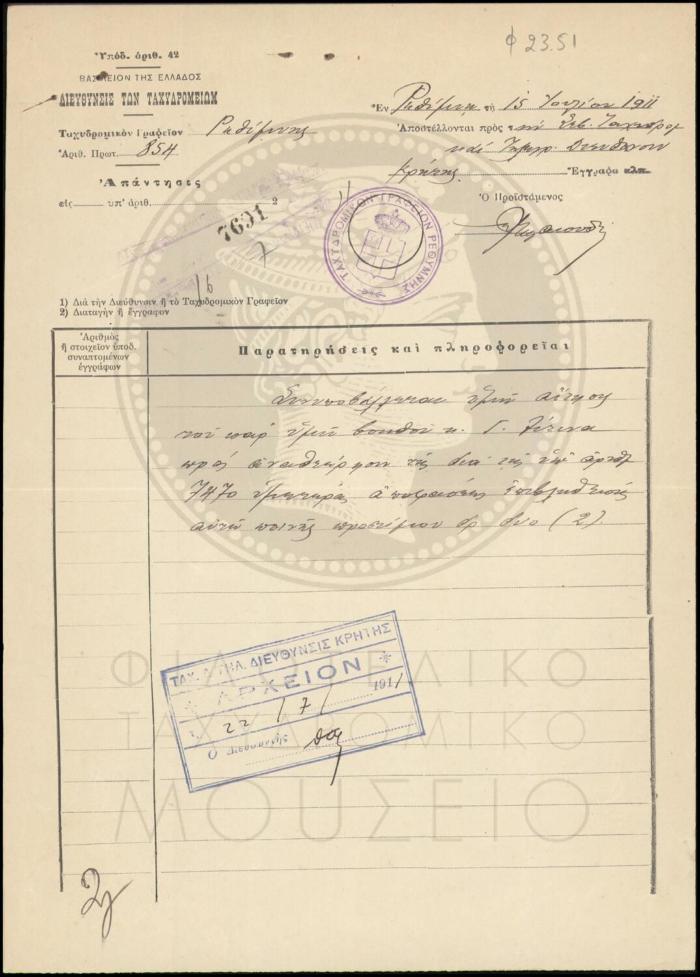 φ 23.51
Ὑπόδ. ἀριθ. 42
ΒΑΣΙΛΕΙΟΝ ΤΗΣ ΕΛΛΑΔΟΣ
ΔΙΕΥΘΥΝΣΙΣ ΤΩΝ ΤΑΧΥΔΡΟΜΕΙΩΝ
Ταχυδρομικὸν Γραφεῖον Ρεθύμνης
Ἀριθ. Πρωτ. 854
Ἀπάντησις
εἰς υπ' ἀριθ. 2
7691
Ἐν Ρεθύμνῃ τῇ 15 Ἰουλίου 1911
Ἀποστέλλονται πρὸς τ ην Σεβ.
καὶ Τηλεγρ. Διεύθυνσιν
Κρήτης Ἔγγραφα κλπ.
Ὁ Προϊστάμενος
ΤΑΧΥΔΡΟΜΙΚΟΝ ΓΡΑΦΕΙΟΝ ΡΕΘΥΜΝΗΣ
1) Διὰ τὴν Διεύθυνσιν ἢ τὸ Ταχυδρομικὸν Γραφεῖον
2) Διαταγὴν ἢ ἔγγραφον
Ἀριθμὸς
ἢ στοιχεῖον ὑποδ.
συναπτομένων
ἐγγράφων
Παρατηρήσεις καὶ πληροφορεῖαι
Συνυποβάλλεται ὑμῖν αἴτησις
τοῦ παρ' ἡμῖν βοηθοῦ κ. Γ.
πρὸς ἀναθεώρησιν τῆς διὰ τῆς ὑπ' ἀριθ.
7470 ὑμετέρας ἀποφάσεως ἐπιβληθείσης
αὐτῷ ποινῆς προστίμου δρ δύο (2).
ΤΑΧ. & ΤΗΛ. ΔΙΕΥΘΥΝΣΙΣ ΚΡΗΤΗΣ
ΑΡΧΕΙΟΝ
22 / 7 / 1911
ΦΙΛΟΤΕΛΙΚΟ
ΤΑΧΥΔΡΟΜΙΚΟ
ΜΟΥΣΕΙΟ